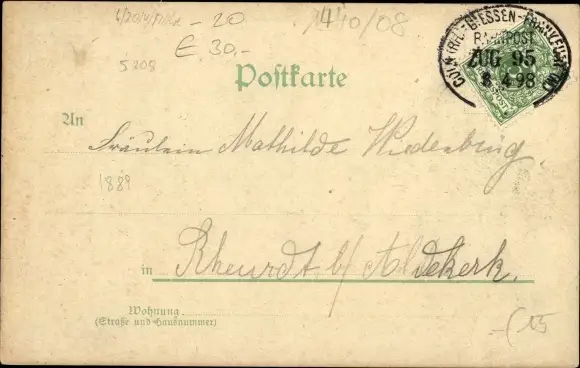 - 20
4/10/08
E 30,-
5208
CÖLN (RH.)-GIESSEN-FRANKFURT (M)
BAHNPOST
ZUG 95
8 4 98
Postkarte
An
Fräulein Mathilde Wiedenbrüg.
1889
in Rheurdt b/ Aldekerk.
Wohnung
(Straße und Hausnummer)
15